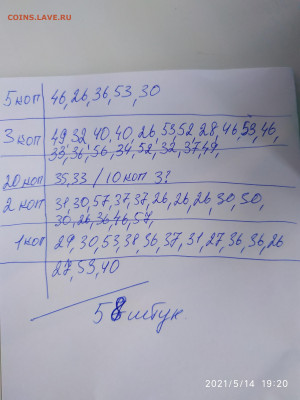 COINS.LAVE.RU
5 коп 46,26,36,53,30
3 коп 49,32,40,40,26,53,52,28,46,53,46,
33,36,56,34,52,32,37,49,
20 коп 35,33 / 10 коп 3?
2 коп 38,30,57,37,37,26,26,26,30,50,
30,26,36,46,57,
1 коп 29,30,53,38,56,37,31,27,36,36,26
27,53,40
58 штук
2021/5/14 19:20